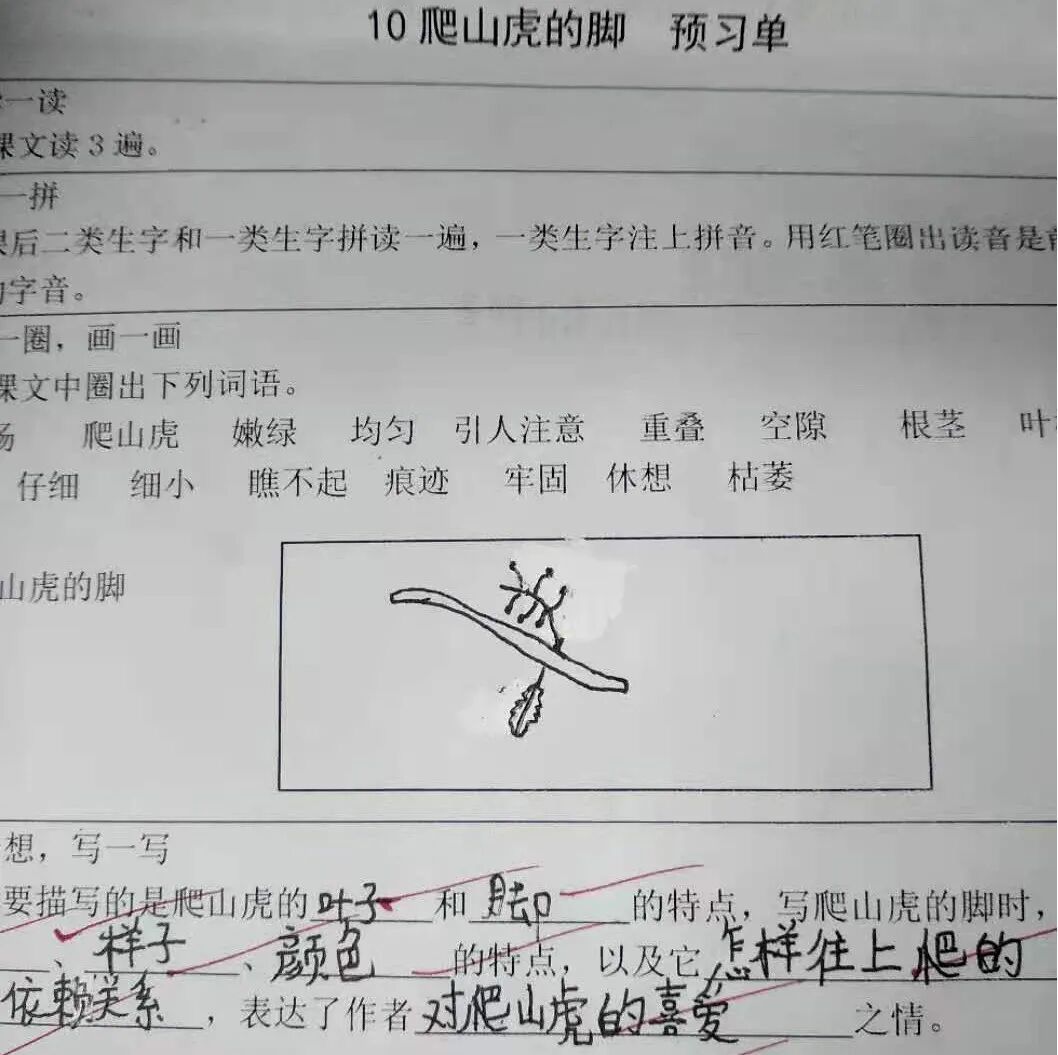 10 爬山虎的脚 预习单
一读
课文读 3 遍。
一拼
课后二类生字和一类生字拼读一遍，一类生字注上拼音。用红笔圈出读音是前
的字音。
一圈，画一画
课文中圈出下列词语。
爬山虎 嫩绿 均匀 引人注意 重叠 空隙 根茎 叶
仔细 细小 瞧不起 痕迹 牢固 休想 枯萎
山虎的脚
想，写一写
要描写的是爬山虎的叶子和 脚 的特点，写爬山虎的脚时，
、样子、颜色 的特点，以及它怎样往上爬的
依赖关系，表达了作者对爬山虎的喜爱之情。